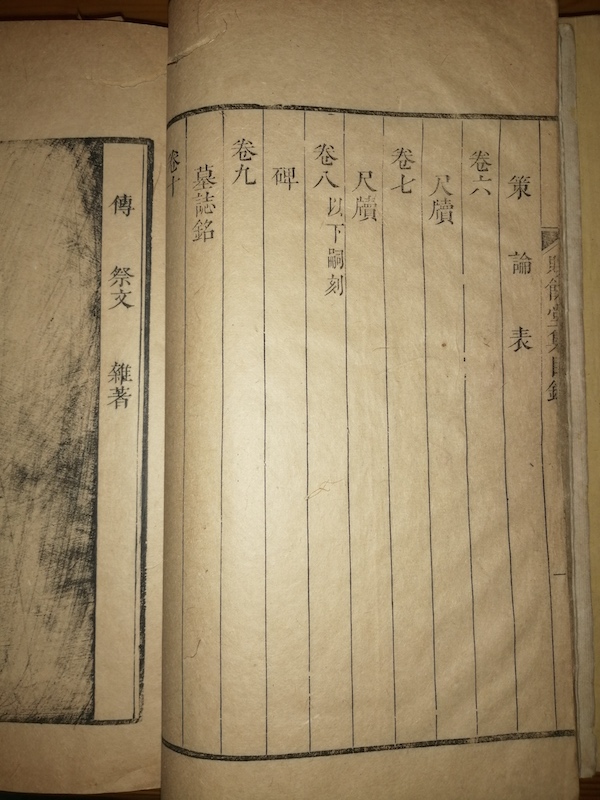 賜餘堂集目錄
策 論 表
卷六
尺牘
卷七
尺牘
卷八 以下嗣刻
碑
卷九
墓誌銘
卷十
傳 祭文 雜著